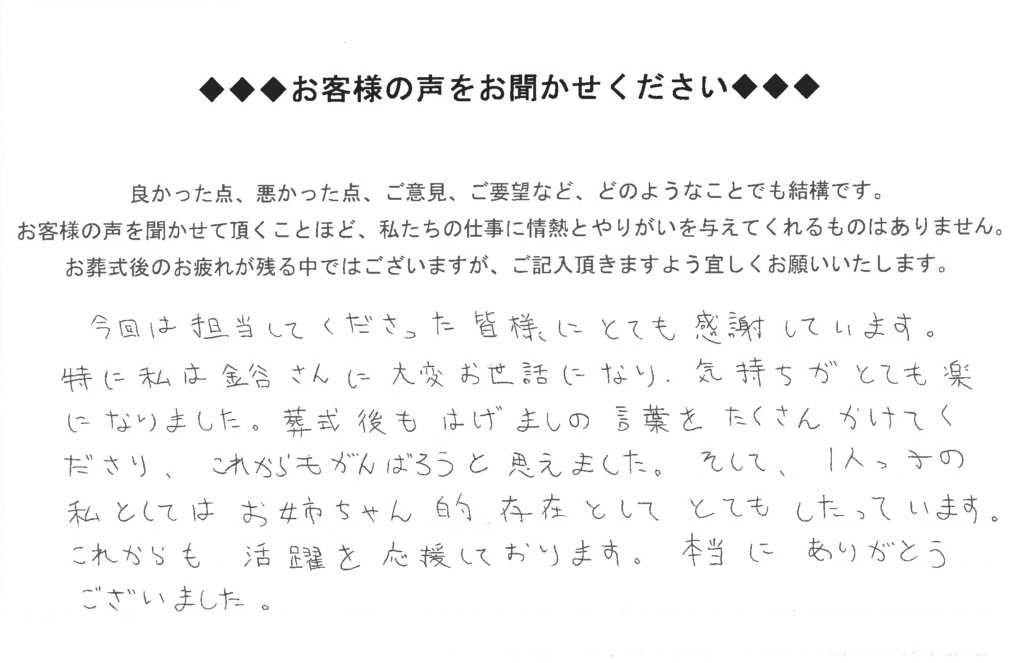 ◆◆◆お客様の声をお聞かせください◆◆◆
良かった点、悪かった点、ご意見、ご要望など、どのようなことでも結構です。
お客様の声を聞かせて頂くことほど、私たちの仕事に情熱とやりがいを与えてくれるものはありません。
お葬式後のお疲れが残る中ではございますが、ご記入頂きますよう宜しくお願いいたします。
今回は担当してくださった皆様にとても感謝しています。
特に私は金谷さんに大変お世話になり、気持ちがとても楽
になりました。葬式後もはげましの言葉をたくさんかけてく
ださり、これからもがんばろうと思えました。そして、1人っ子の
私としてはお姉ちゃん的存在としてとてもしたっています。
これからも活躍を応援しております。本当にありがとう
ございました。